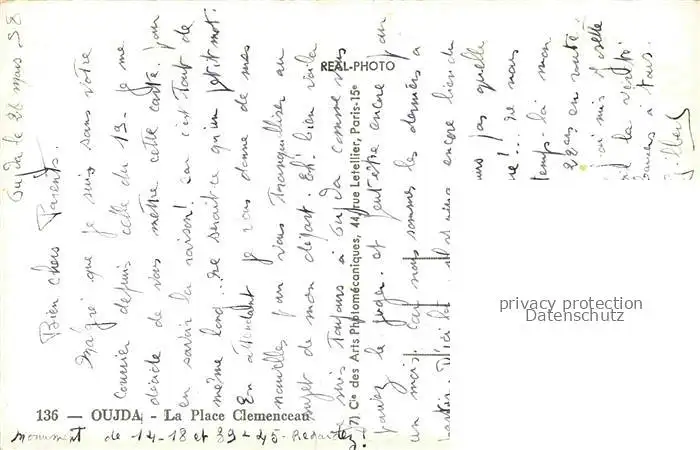 Oujda le 26 mars 58
Bien chers Parents.
Malgré que je suis sans votre
courrier depuis celle du 13 - je me
décide de vous mettre cette carte. pour
en savoir la raison! car c'est tout de
même long... ne serait-ce qu'un petit mot!
En attendant je vous donne de mes
nouvelles pour vous tranquilliser au
sujet de mon départ. Eh! bien voilà
je suis toujours à Oujda comme vous
pouvez le juger. et peut-être encore pour
un mois. Car nous sommes les derniers à
partir. D'ici là il va encore bien du
pas quelle
temps-là mon
en route
j'ai mis
il la vérité!
à tous.
Gilbert
REAL-PHOTO
Cie des Arts Photomécaniques, 44, rue Letellier, Paris-15e
privacy protection
Datenschutz
136 — OUJDA - La Place Clemenceau
monument de 14-18 et 39-45 - Regardez!